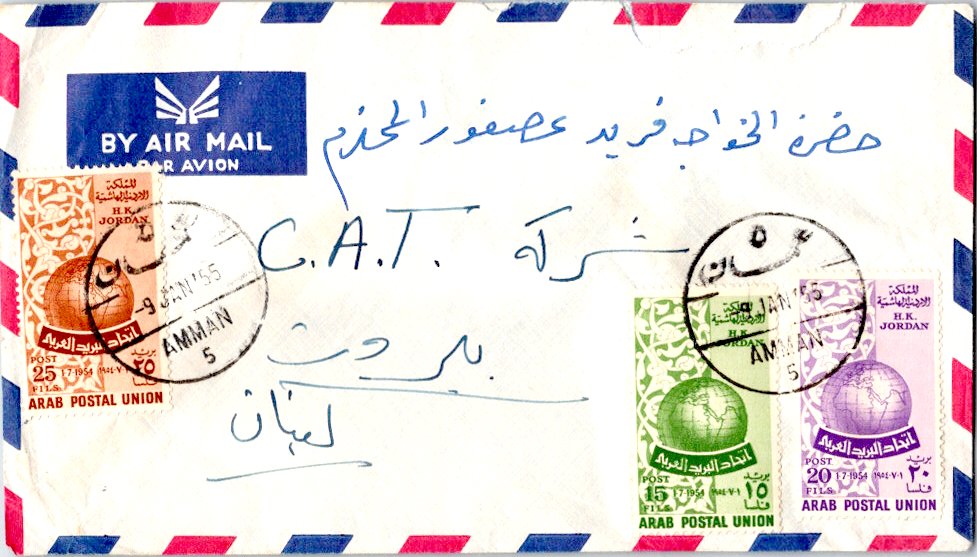 BY AIR MAIL
PAR AVION
حضرة الخواجه فريد عصفور المحترم
شركة C.A.T.
بيروت
لبنان
المملكة
الاردنية الهاشمية
H.K.
JORDAN
اتحاد البريد العربي
POST
25
FILS
1-7-1954
١-٧-١٩٥٤
بريد
٢٥
فلسا
ARAB POSTAL UNION
عمان
٥
-9 JAN '55
AMMAN
5
المملكة
الاردنية الهاشمية
H.K.
JORDAN
اتحاد البريد العربي
POST
15
FILS
1-7-1954
١-٧-١٩٥٤
بريد
١٥
فلسا
ARAB POSTAL UNION
عمان
٥
-9 JAN '55
AMMAN
5
المملكة
الاردنية الهاشمية
H.K.
JORDAN
اتحاد البريد العربي
POST
20
FILS
1-7-1954
١-٧-١٩٥٤
بريد
٢٠
فلسا
ARAB POSTAL UNION